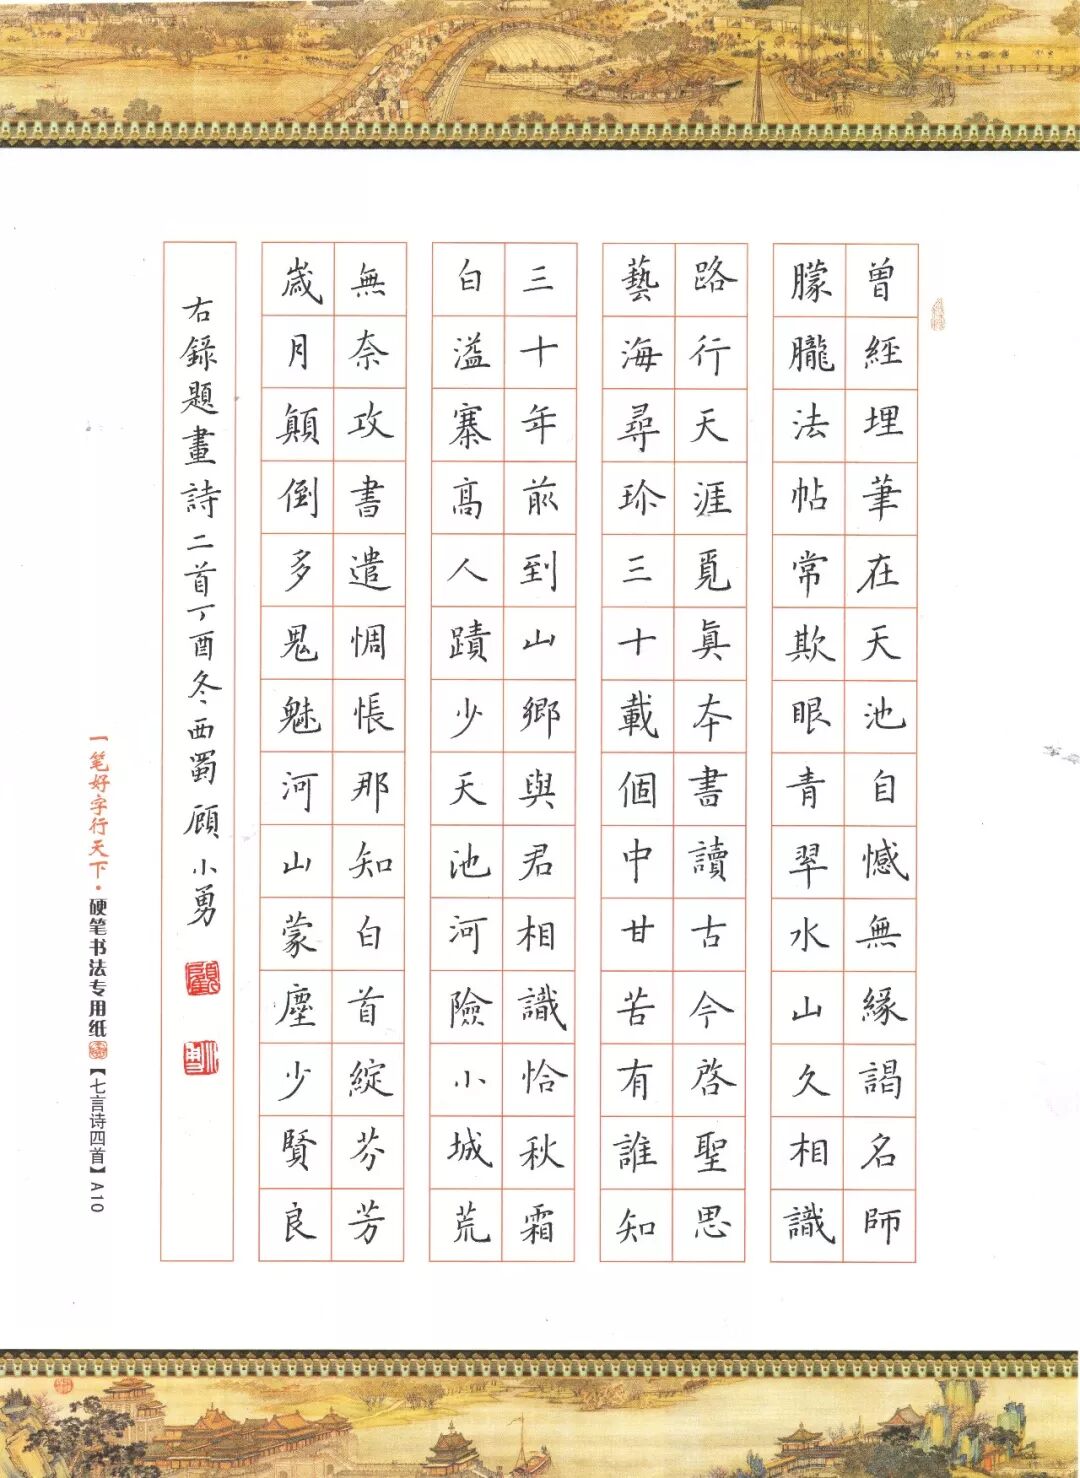 曾經埋筆在天池自憾無緣謁名師
朦朧法帖常欺眼青翠水山久相識
路行天涯覓真本書讀古今啓聖思
藝海尋珍三十載個中甘苦有誰知
三十年前到山鄉與君相識恰秋霜
白溢寨高人蹟少天池河險小城荒
無奈攻書遣惆悵那知白首綻芬芳
歲月顛倒多鬼魅河山蒙塵少賢良
右錄題畫詩二首丁酉冬西蜀顧小勇
一笔好字行天下·硬笔书法专用纸【七言诗四首】A10